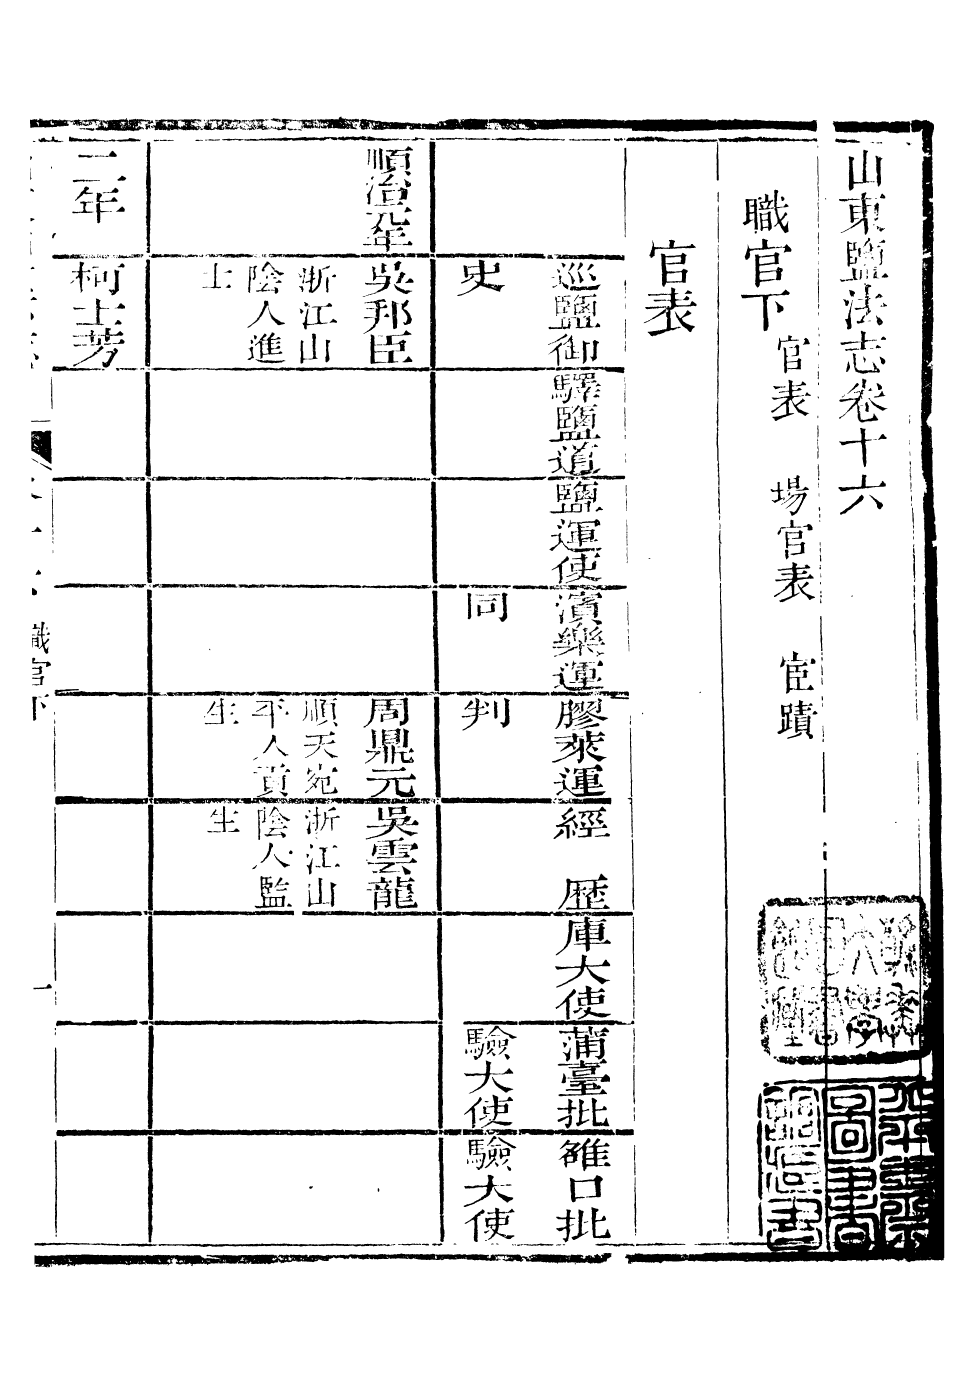 山東鹽法志卷十六
職官下 官表 場官表 宦蹟
官表
巡鹽御史
驛鹽道
鹽運使
濱樂運同
膠萊運判
經歷
庫大使
蒲臺批驗大使
雒口批驗大使
順治元年
吳邦臣 浙江山陰人進士
周鼎元 順天宛平人貢生
吳雲龍 浙江山陰人監生
二年
柯士芳
職官下
一